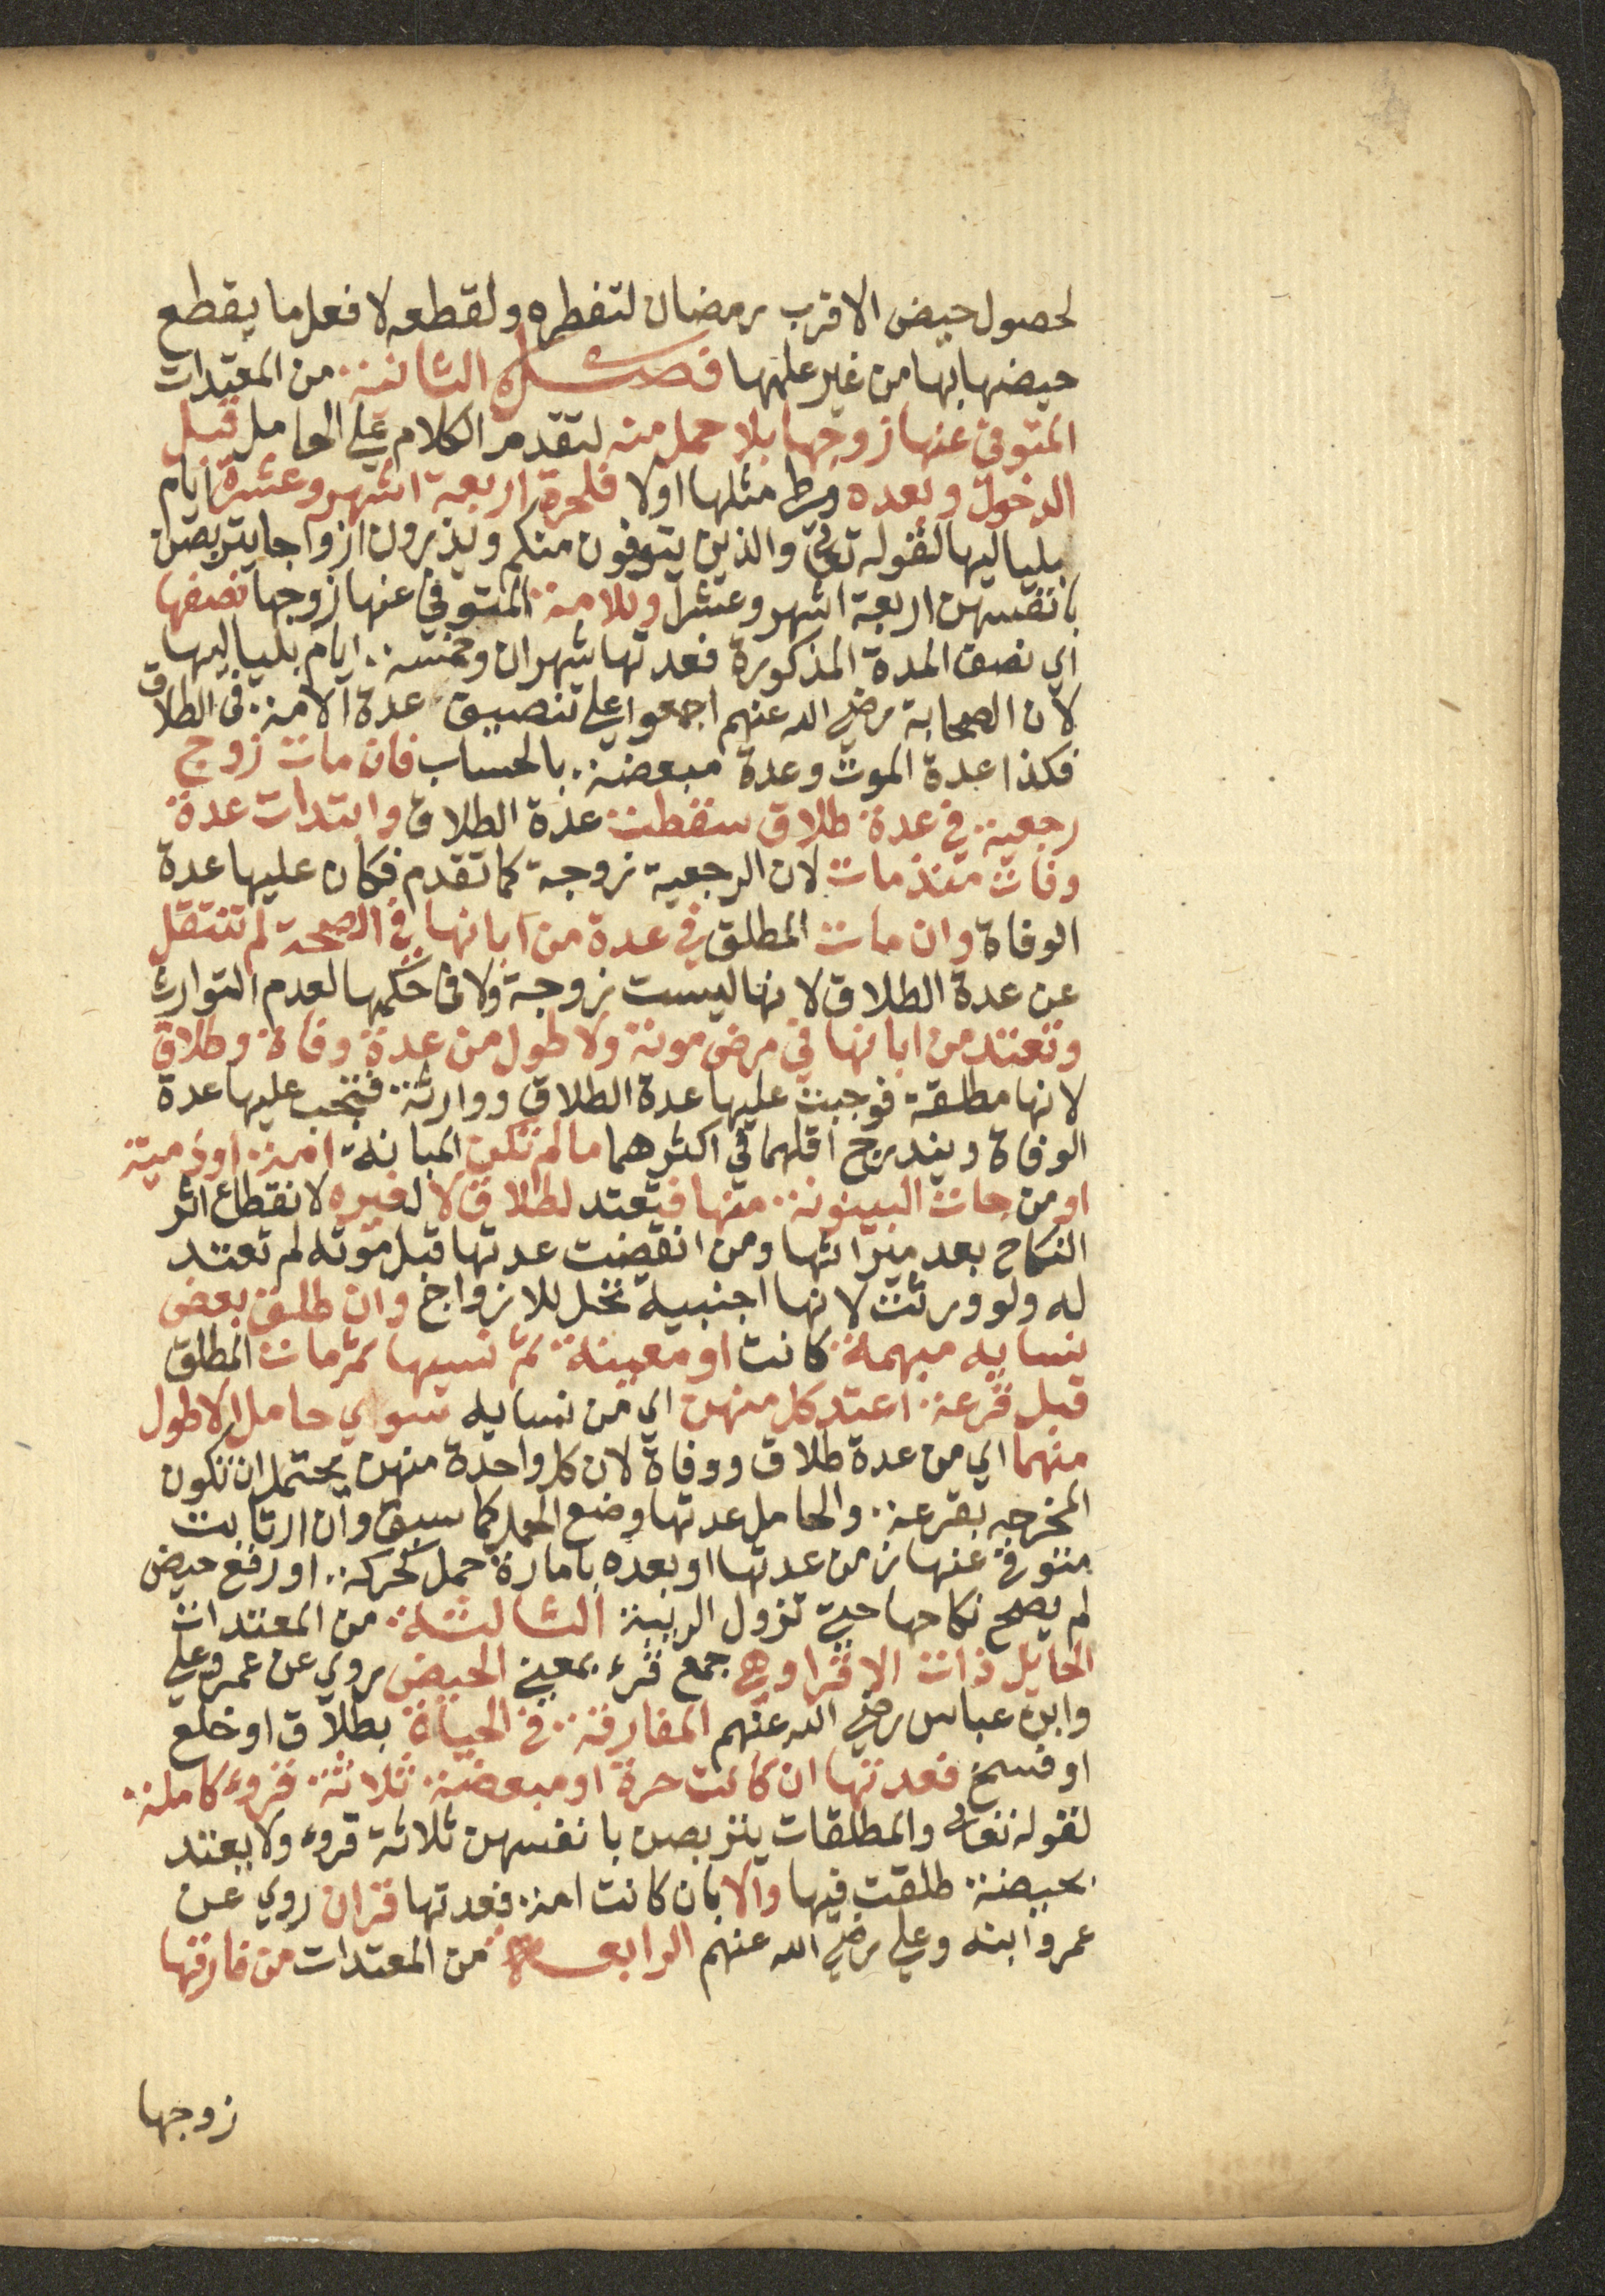 لحصول حيض الاقرب رمضان لتفطره ولقطعه لا فعل ما يقطع
حيضها بها من غير علمها فصل الثانية من المعتدات
المتوفى عنها زوجها بلا حمل منه لتقدم الكلام على الحامل قبل
الدخول وبعده وطئ مثلها اولا فللحرة اربعة اشهر وعشرة ايام
بلياليها لقوله تعالى والذين يتوفون منكم ويذرون ازواجا يتربصن
بانفسهن اربعة اشهر وعشرا وللامة المتوفى عنها زوجها نصفها
اي نصف المدة المذكورة فعدتها شهران وخمسة ايام بلياليها
لان الصحابة رضي الله عنهم اجمعوا على تنصيف عدة الامة في الطلاق
فكذا عدة الموت وعدة مبعضة بالحساب فان مات زوج
رجعية في عدة طلاق سقطت عدة الطلاق وابتدات عدة
وفات منذ مات لان الرجعية زوجة كما تقدم فكان عليها عدة
الوفاة وان مات المطلق في عدة من ابانها في الصحة لم تنتقل
عن عدة الطلاق لانها ليست زوجة ولا في حكمها لعدم التوارث
وتعتد من ابانها في مرض موته ولاطول من عدة وفاة وطلاق
لانها مطلقة فوجبت عليها عدة الطلاق ووارثة فتجب عليها عدة
الوفاة ويندرج اقلهما في اكثرهما ما لم تكن المبانة امة او ذمية
او من جات البينونة منها فتعتد لطلاق لا لغيره لانقطاع اثر
النكاح بعد ميراثها ومن انقضت عدتها قبل موته لم تعتد
له ولو ورثت لانها اجنبية تحل للازواج وان طلق بعض
نسايه مبهمة كانت او معينة ثم نسيها ثم مات المطلق
قبل قرعة اعتد كل منهن اي من نسايه سوي حامل الاطول
منهما اي من عدة طلاق ووفاة لان كل واحدة منهن يحتمل ان تكون
المخرجه بقرعة والحامل عدتها وضع الحمل كما سبق وان ارتابت
متوفى عنها زمن عدتها او بعده بامارة حمل كحركة او رفع حيض
لم يصح نكاحها حتى تزول الريبة الثالثة من المعتدات
الحايل ذات الاقرا وهي جمع قرء بمعنى الحيض روي عن عمر وعلي
وابن عباس رضي الله عنهم المفارقة في الحياة بطلاق او خلع
او فسخ فعدتها ان كانت حرة او مبعضة ثلاثة قروء كاملة
لقوله تعالى والمطلقات يتربصن بانفسهن ثلاثة قروء ولا يعتد
بحيضة طلقت فيها والا بان كانت امة فعدتها قران روي عن
عمر وابنه وعلي رضي الله عنهم الرابعة من المعتدات من فارقها
زوجها